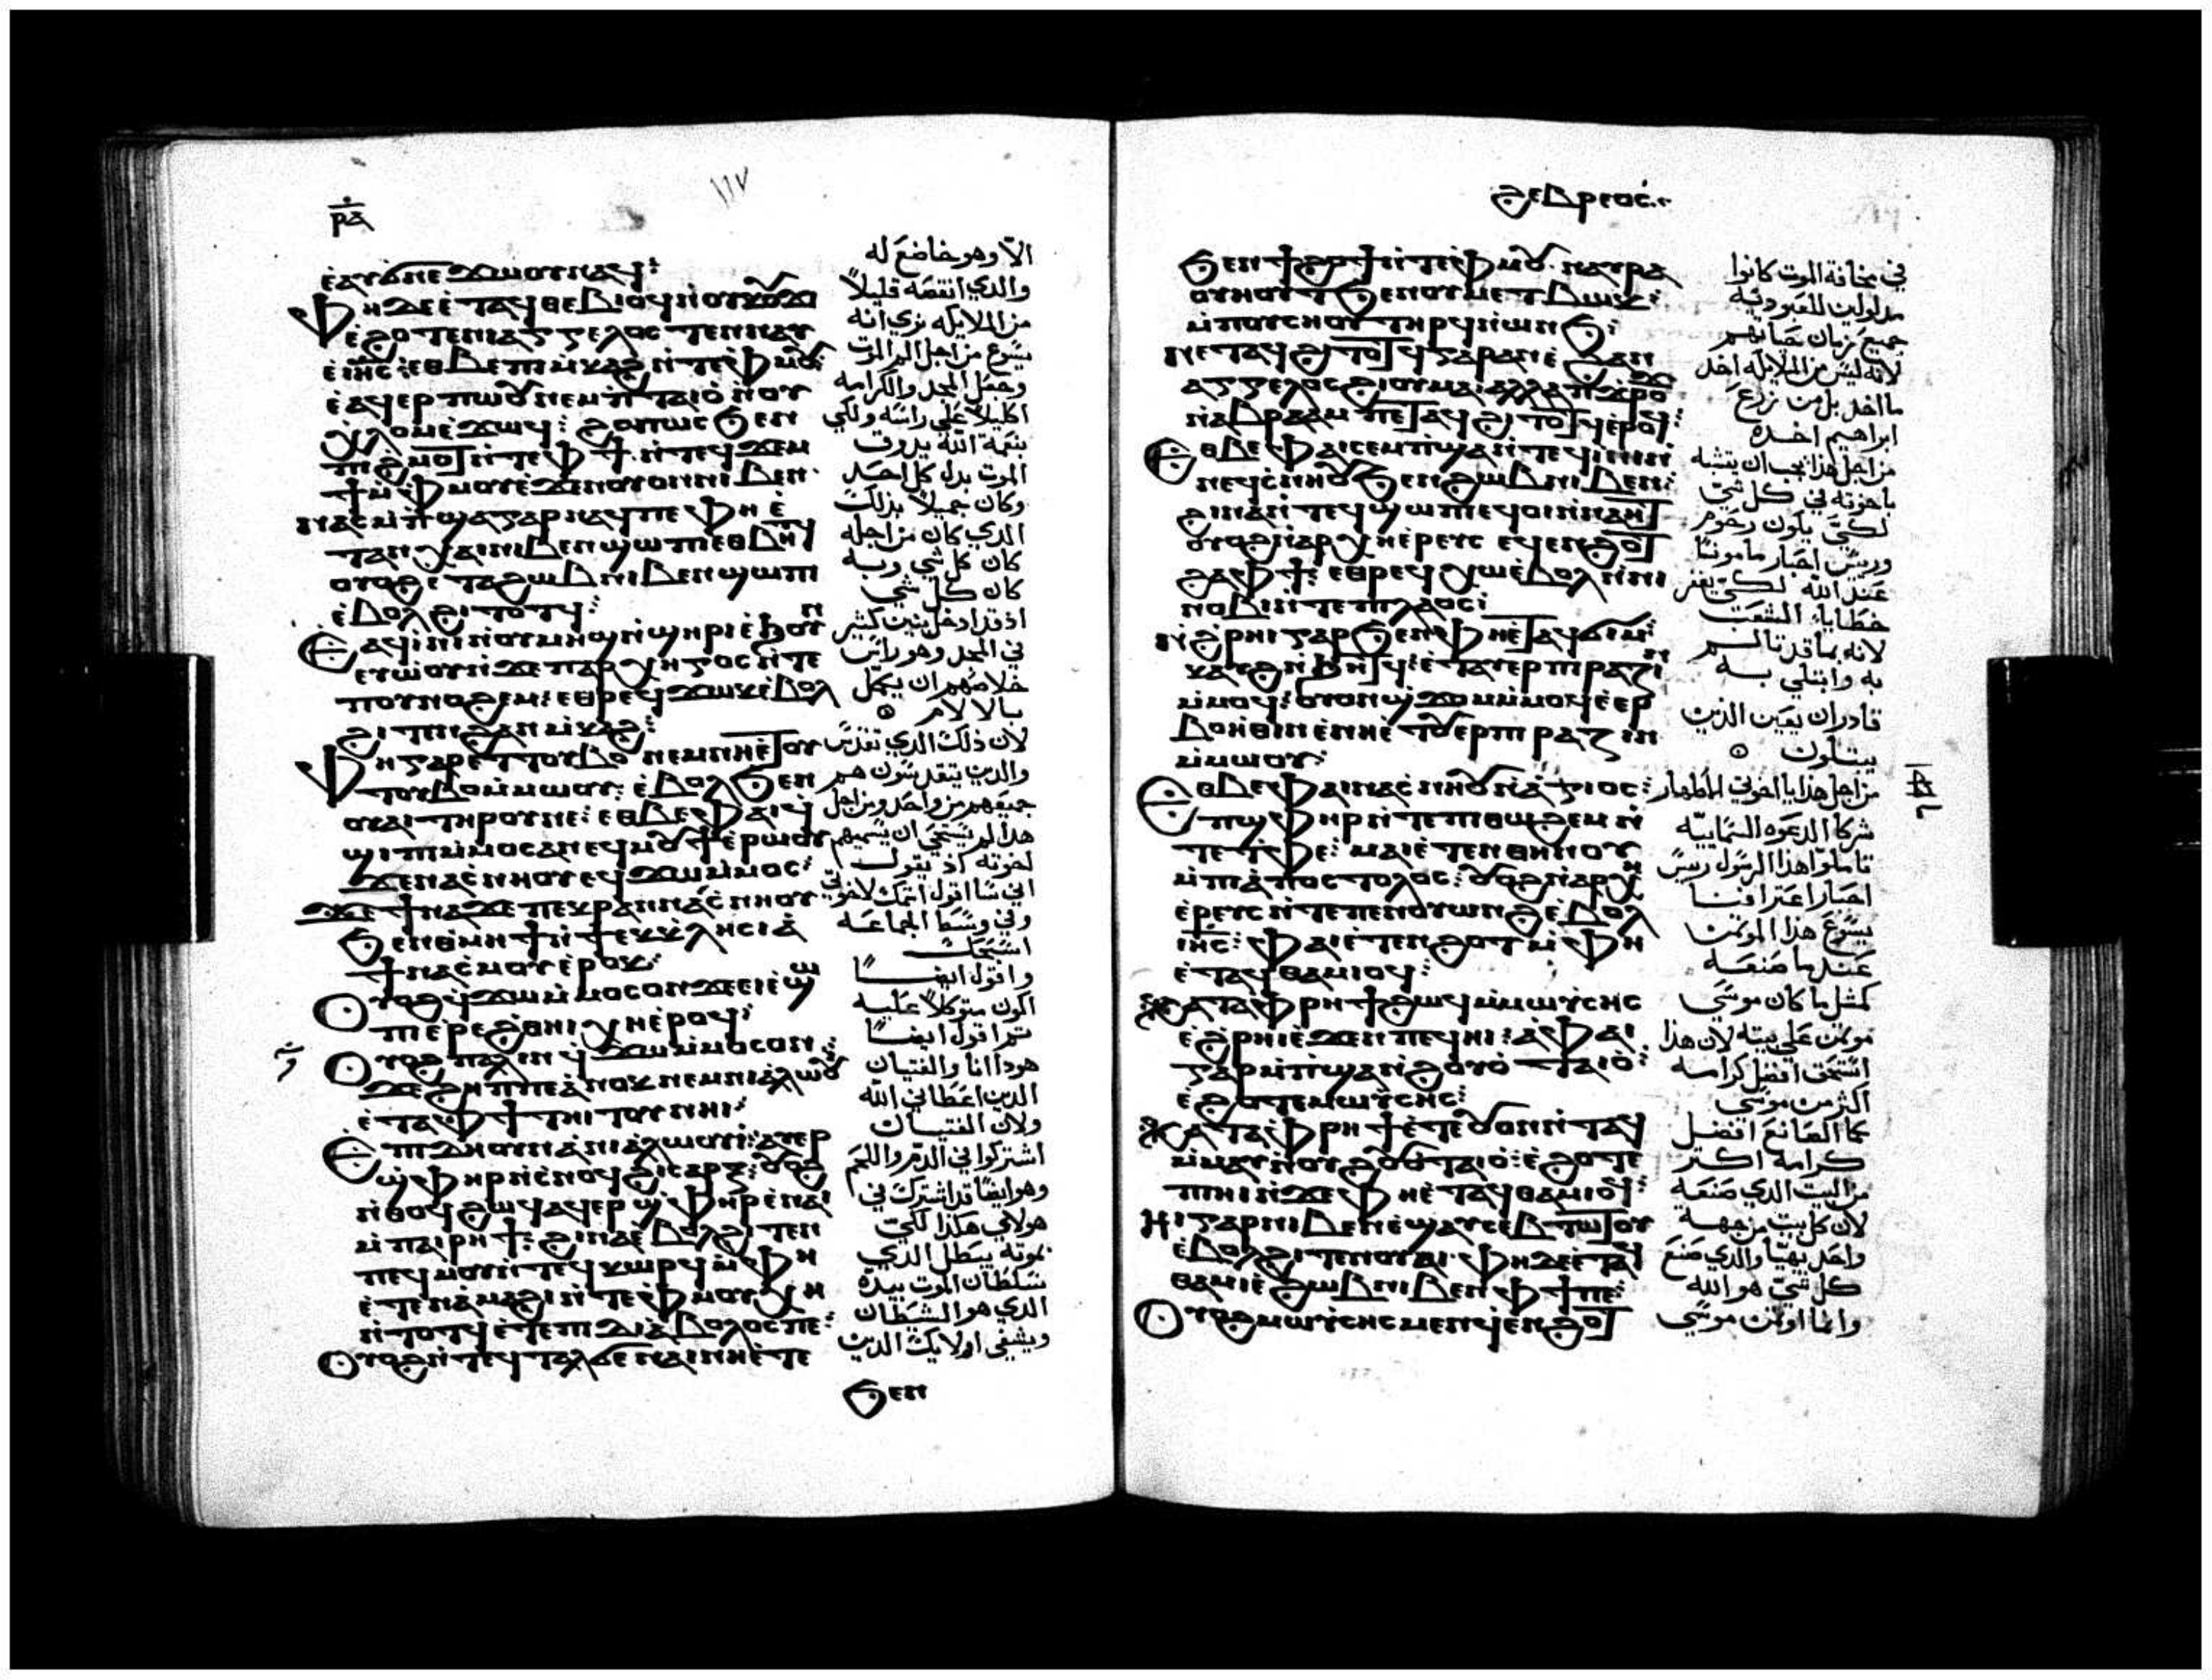 ⲣⲁ
١١٧
ⲉⲁⲩϭⲛⲉ ϫⲱⲟⲩ ⲛⲁϥ:
Ⲫⲏ ⲇⲉ ⲉⲧⲁϥⲑⲉⲃⲓⲟϥ ⲛⲟⲩⲕⲟⲩϫⲓ
ⲉϩⲟⲧⲉ ⲛⲓⲁⲅⲅⲉⲗⲟⲥ ⲧⲉⲛⲛⲁⲩ
ⲉⲓⲏⲥ: ⲉⲑⲃⲉ ⲡⲓⲙⲕⲁϩ ⲛⲧⲉ ⲫⲙⲟⲩ:
ⲉⲁϥⲉⲣ ⲡⲱⲟⲩ ⲛⲉⲙ ⲡⲧⲁⲓⲟ ⲛⲟⲩ
ⲭⲗⲟⲙ ⲉϫⲱϥ: ϩⲟⲡⲱⲥ ϧⲉⲛ
ⲡⲓϩⲙⲟⲧ ⲛⲧⲉ ⲫϯ ⲛⲧⲉϥϫⲉⲙ
ϯⲡⲓ ⲙⲫⲙⲟⲩ ⲉϫⲉⲛ ⲟⲩⲟⲛ ⲛⲓⲃⲉⲛ
ⲛⲁⲥⲙⲡϣⲁ ⲅⲁⲣ ⲛⲁϥ ⲡⲉ ⲫⲏ ⲉ
ⲧⲁ ⲛⲭⲁⲓ ⲛⲓⲃⲉⲛ ϣⲱⲡⲓ ⲉⲑⲃⲏⲧϥ
ⲟⲩⲟϩ ⲉⲧⲁ ϩⲱⲃ ⲛⲓⲃⲉⲛ ϣⲱⲡⲓ
ⲉⲃⲟⲗ ϩⲓⲧⲟⲧϥ:
Ⲉⲁϥⲓⲛⲓ ⲛⲟⲩⲙⲏϣ ⲛϣⲏⲣⲓ ⲉϧⲟⲩⲛ
ⲉⲩⲱⲟⲩ ⲛϫⲉ ⲡⲁⲣⲭⲏⲅⲟⲥ ⲛⲧⲉ
ⲡⲟⲩⲛⲟϩⲉⲙ: ⲉⲑⲣⲉϥϫⲱⲕ ⲉⲃⲟⲗ
ϩⲓⲧⲉⲛ ϩⲁⲛⲙⲕⲁϩ:
Ⲫⲏ ⲅⲁⲣ ⲉⲧⲧⲟⲩⲃⲟ ⲛⲉⲙ ⲛⲏ ⲉⲧⲟⲩ
ⲧⲟⲩⲃⲟ ⲙⲙⲱⲟⲩ: ⲉⲃⲟⲗ ϧⲉⲛ
ⲟⲩⲁⲓ ⲧⲏⲣⲟⲩ ⲛⲉ: ⲉⲑⲃⲉ ⲫⲁⲓ ϥ
ϣⲓⲡⲓ ⲙⲙⲟⲥ ⲁⲛ ⲉϥⲙⲟⲩϯ ⲉⲣⲱⲟⲩ
ϫⲉ ⲛⲁⲥⲛⲏⲟⲩ ⲉϥϫⲱ ⲙⲙⲟⲥ:
ϫⲉ ϯⲛⲁϫⲉ ⲡⲉⲕⲣⲁⲛ ⲛⲁⲥⲛⲏⲟⲩ
ϧⲉⲛ ⲑⲙⲏϯ ⲛϯⲉⲕⲕⲗⲏⲥⲓⲁ
ϯⲛⲁⲥⲙⲟⲩ ⲉⲣⲟⲕ:
Ⲟⲩⲟϩ ϥϫⲱ ⲙⲙⲟⲥ ⲟⲛ ϫⲉ ⲉⲓⲉϣⲱ
ⲡⲓ ⲉⲣⲉ ϩⲑⲏⲓ ⲭⲏ ⲉⲣⲟϥ:
Ⲟⲩⲟϩ ⲡⲁⲗⲓⲛ ϥϫⲱ ⲙⲙⲟⲥ ⲟⲛ:
ϫⲉ ϩⲏⲡⲡⲉ ⲁⲛⲟⲕ ⲛⲉⲙ ⲛⲓⲁⲗⲱⲟⲩⲓ
ⲉⲧⲁ ⲫϯ ⲧⲏⲓⲧⲟⲩ ⲛⲏⲓ:
Ⲉⲡⲓⲇⲏ ⲟⲩⲛ ⲁ ⲛⲓⲁⲗⲱⲟⲩⲓ: ⲁⲩⲉⲣ
ϣⲫⲏⲣ ⲛⲥⲛⲟϥ ϩⲓ ⲥⲁⲣⲝ: ⲟⲩⲟϩ
ⲛⲑⲟϥ ϩⲱϥ ⲁϥⲉⲣ ϣⲫⲏⲣ ⲉⲛⲁⲓ
ⲙⲡⲁⲓⲣⲏϯ: ϩⲓⲛⲁ ⲉⲃⲟⲗ ϩⲓⲧⲉⲛ
ⲡⲉϥⲙⲟⲩ ⲛⲧⲉϥⲕⲱⲣϥ ⲙⲫⲏ
ⲉⲧⲉ ⲡⲁⲙⲁϩⲓ ⲛⲧⲉ ⲫⲙⲟⲩ ⲭⲏ
ⲛⲧⲟⲧϥ ⲉⲧⲉ ⲡⲓⲇⲓⲁⲃⲟⲗⲟⲥ ⲡⲉ:
Ⲟⲩⲟϩ ⲛⲧⲉϥⲧⲁⲗϭⲉ ⲛⲁⲓ ⲛⲏ ⲉⲧⲉ
ϧⲉⲛ
الا وهو خاضع له
والدي انتقصه قليلاً
من الملايكه نري انه
يسوع من اجل الم الموت
وجعل المجد والكرامه
اكليلاً علي راسه ولكي
بنعمة الله يدوق
الموت بدل كل احد
وكان جميلاً بذلك
الدي كان من اجله
كان كل شي وبه
كان كل شي
اذ قد ادخل بنين كثير
في المجد وهو راس
خلاصهم ان يكمل
بالالام
لان ذلك الدي تقدس
والدين يتقدسون هم
جميعهم من واحد ومن اجل
هدا لم يستحي ان يسميهم
اخوته اذ يقول
اني سا اقول اسمك لاخوتي
وفي وسط الجماعه
اسبحك
واقول ايضاً
اكون متوكلاً عليه
ثم اقول ايضاً
هودا انا والفتيان
الدين اعطاني الله
ولان الفتيان
اشتركوا في الدم واللحم
وهو ايضاً قد اشترك في
هولاي هكذا لكي
بموته يبطل الدي
سلطان الموت بيده
الدي هو الشيطان
ويشفي اولايك الدين
ϩⲉⲃⲣⲉⲟⲥ
ϧⲉⲛ ϯϩⲟϯ ⲛⲧⲉ ⲫⲙⲟⲩ ⲛⲁⲩⲣⲁ
ⲟⲩⲏⲟⲩⲧ ϧⲉⲛ ⲟⲩⲙⲉⲧⲃⲱⲕ:
ⲙⲡⲟⲩⲥⲏⲟⲩ ⲧⲏⲣϥ ⲛⲱⲛϧ:
ⲛⲉⲧⲁϥϩⲓⲧⲟⲧϥ ⲅⲁⲣ ⲁⲛ ⲉϩⲁⲛ
ⲁⲅⲅⲉⲗⲟⲥ ϩⲓ ⲟⲩⲙⲁ ⲁⲗⲗⲁ ⲡϫⲣⲟϫ
ⲛⲁⲃⲣⲁⲁⲙ ⲡⲉⲧⲁϥϩⲓⲧⲟⲧϥ ⲉⲣⲟϥ:
Ⲉⲑⲃⲉ ⲫⲁⲓ ⲥⲉⲙⲡϣⲁ ⲛⲧⲉϥⲓⲛⲓ ⲛ
ⲛⲉϥⲥⲛⲏⲟⲩ ϧⲉⲛ ϩⲱⲃ ⲛⲓⲃⲉⲛ:
ϩⲓⲛⲁ ⲛⲧⲉϥϣⲱⲡⲓ ⲉϥⲟⲓ ⲛⲛⲁⲏⲧ
ⲟⲩⲟϩ ⲛⲁⲣⲭⲏⲉⲣⲉⲩⲥ ⲉϥⲉⲛϩⲟⲧ
ϩⲁ ⲫϯ: ⲉⲑⲣⲉϥⲭⲱ ⲉⲃⲟⲗ ⲛⲛⲓ
ⲛⲟⲃⲓ ⲛⲧⲉ ⲡⲓⲗⲁⲟⲥ:
ⲛϩⲣⲏⲓ ⲅⲁⲣ ϧⲉⲛ ⲫⲏ ⲉⲧⲁϥϭⲓ ⲙ
ⲕⲁⲩϩ ⲛϧⲏⲧϥ: ⲉⲧⲁⲩⲉⲣⲡⲓⲣⲁⲍⲓⲛ
ⲙⲙⲟϥ: ⲟⲩⲟⲛ ϣϫⲟⲙ ⲙⲙⲟϥ ⲉⲉⲣ
ⲃⲟⲏⲑⲓⲛ ⲉⲛⲏ ⲉⲧⲟⲩⲉⲣⲡⲓⲣⲁⲍⲓⲛ
ⲙⲙⲱⲟⲩ:
Ⲉⲑⲃⲉ ⲫⲁⲓ ⲛⲁⲥⲛⲏⲟⲩ ⲛⲁⲅⲓⲟⲥ:
ⲛϣⲫⲏⲣ ⲛⲧⲉ ⲡⲓⲑⲱϩⲉⲙ ⲛ
ⲧⲉ ⲧⲫⲉ: ⲙⲁⲓⲁⲧⲉⲛ ⲑⲏⲛⲟⲩ
ⲙⲡⲁⲡⲟⲥⲧⲟⲗⲟⲥ: ⲟⲩⲟϩ ⲛⲁⲣⲭⲏ
ⲉⲣⲉⲩⲥ ⲛⲧⲉ ⲡⲉⲛⲟⲩⲱⲛϩ ⲉⲃⲟⲗ
ⲓⲏⲥ: ⲫⲁⲓ ⲉⲧⲉⲛϩⲟⲧ ⲙⲫⲏ
ⲉⲧⲁϥⲑⲁⲙⲓⲟϥ:
Ⲕⲁⲧⲁ ⲫⲣⲏϯ ϩⲱϥ ⲙⲙⲱⲩⲥⲏⲥ
ⲉϩⲣⲏⲓ ⲉϫⲉⲛ ⲡⲉϥⲏⲓ: ⲁ ⲫⲁⲓ
ⲅⲁⲣ ⲙⲡϣⲁ ⲛϩⲟⲩⲟ ⲧⲁⲓⲟ:
ⲉϩⲟⲧⲉ ⲙⲱⲩⲥⲏⲥ:
Ⲕⲁⲧⲁ ⲫⲣⲏϯ ⲉⲧⲉ ⲟⲩⲟⲛⲛⲧⲁϥ
ⲙⲙⲁⲩ ⲛⲟⲩϩⲟⲩⲟ ⲧⲁⲓⲟ: ⲉϩⲟⲧⲉ
ⲡⲏⲓ ⲛϫⲉ ⲫⲏ ⲉⲧⲁϥⲑⲁⲙⲓⲟϥ:
Ⲏⲓ ⲅⲁⲣ ⲛⲓⲃⲉⲛ ⲉϣⲁⲩⲥⲉⲃⲧⲱⲧⲟⲩ
ⲉⲃⲟⲗ ϩⲓⲧⲉⲛ ⲟⲩⲁⲓ: ⲫⲏ ⲇⲉ ⲉⲧⲁϥ
ⲑⲁⲙⲓⲉ ϩⲱⲃ ⲛⲓⲃⲉⲛ ⲫϯ ⲡⲉ:
Ⲟⲩⲟϩ ⲙⲱⲩⲥⲏⲥ ⲙⲉⲛ ϥⲉⲛϩⲟⲧ
في مخافة الموت كانوا
مدلولين للعبوديه
جميع زمان حياتهم
لانه ليس من الملايكه اخد
ما اخد بل من زرع
ابراهيم اخده
من اجل هذا يجب ان يتشبه
باخوته في كل شي
لكي يكون رحوم
وريس احبار مامونا
عند الله لكي يغفر
خطايا الشعب
لانه بما قد تالم
به وابتلي به
قادر ان يعين الذين
يبتلون
من اجل هذا يا اخوتي الاطهار
شركا الدعوه السماييه
تاملوا هذا الرسول ريس
احبار اعترافنا
يسوع هذا الموتمن
عند ما صنعه
كمثل ما كان موسي
موتمن علي بيته لان هذا
استحق افضل كرامه
اكثر من موسي
كما الصانع افضل
كرامه اكثر
من البيت الدي صنعه
لان كل بيت من جهه
واحد يهيا والدي صنع
كل شي هو الله
واما اوتمن موسي